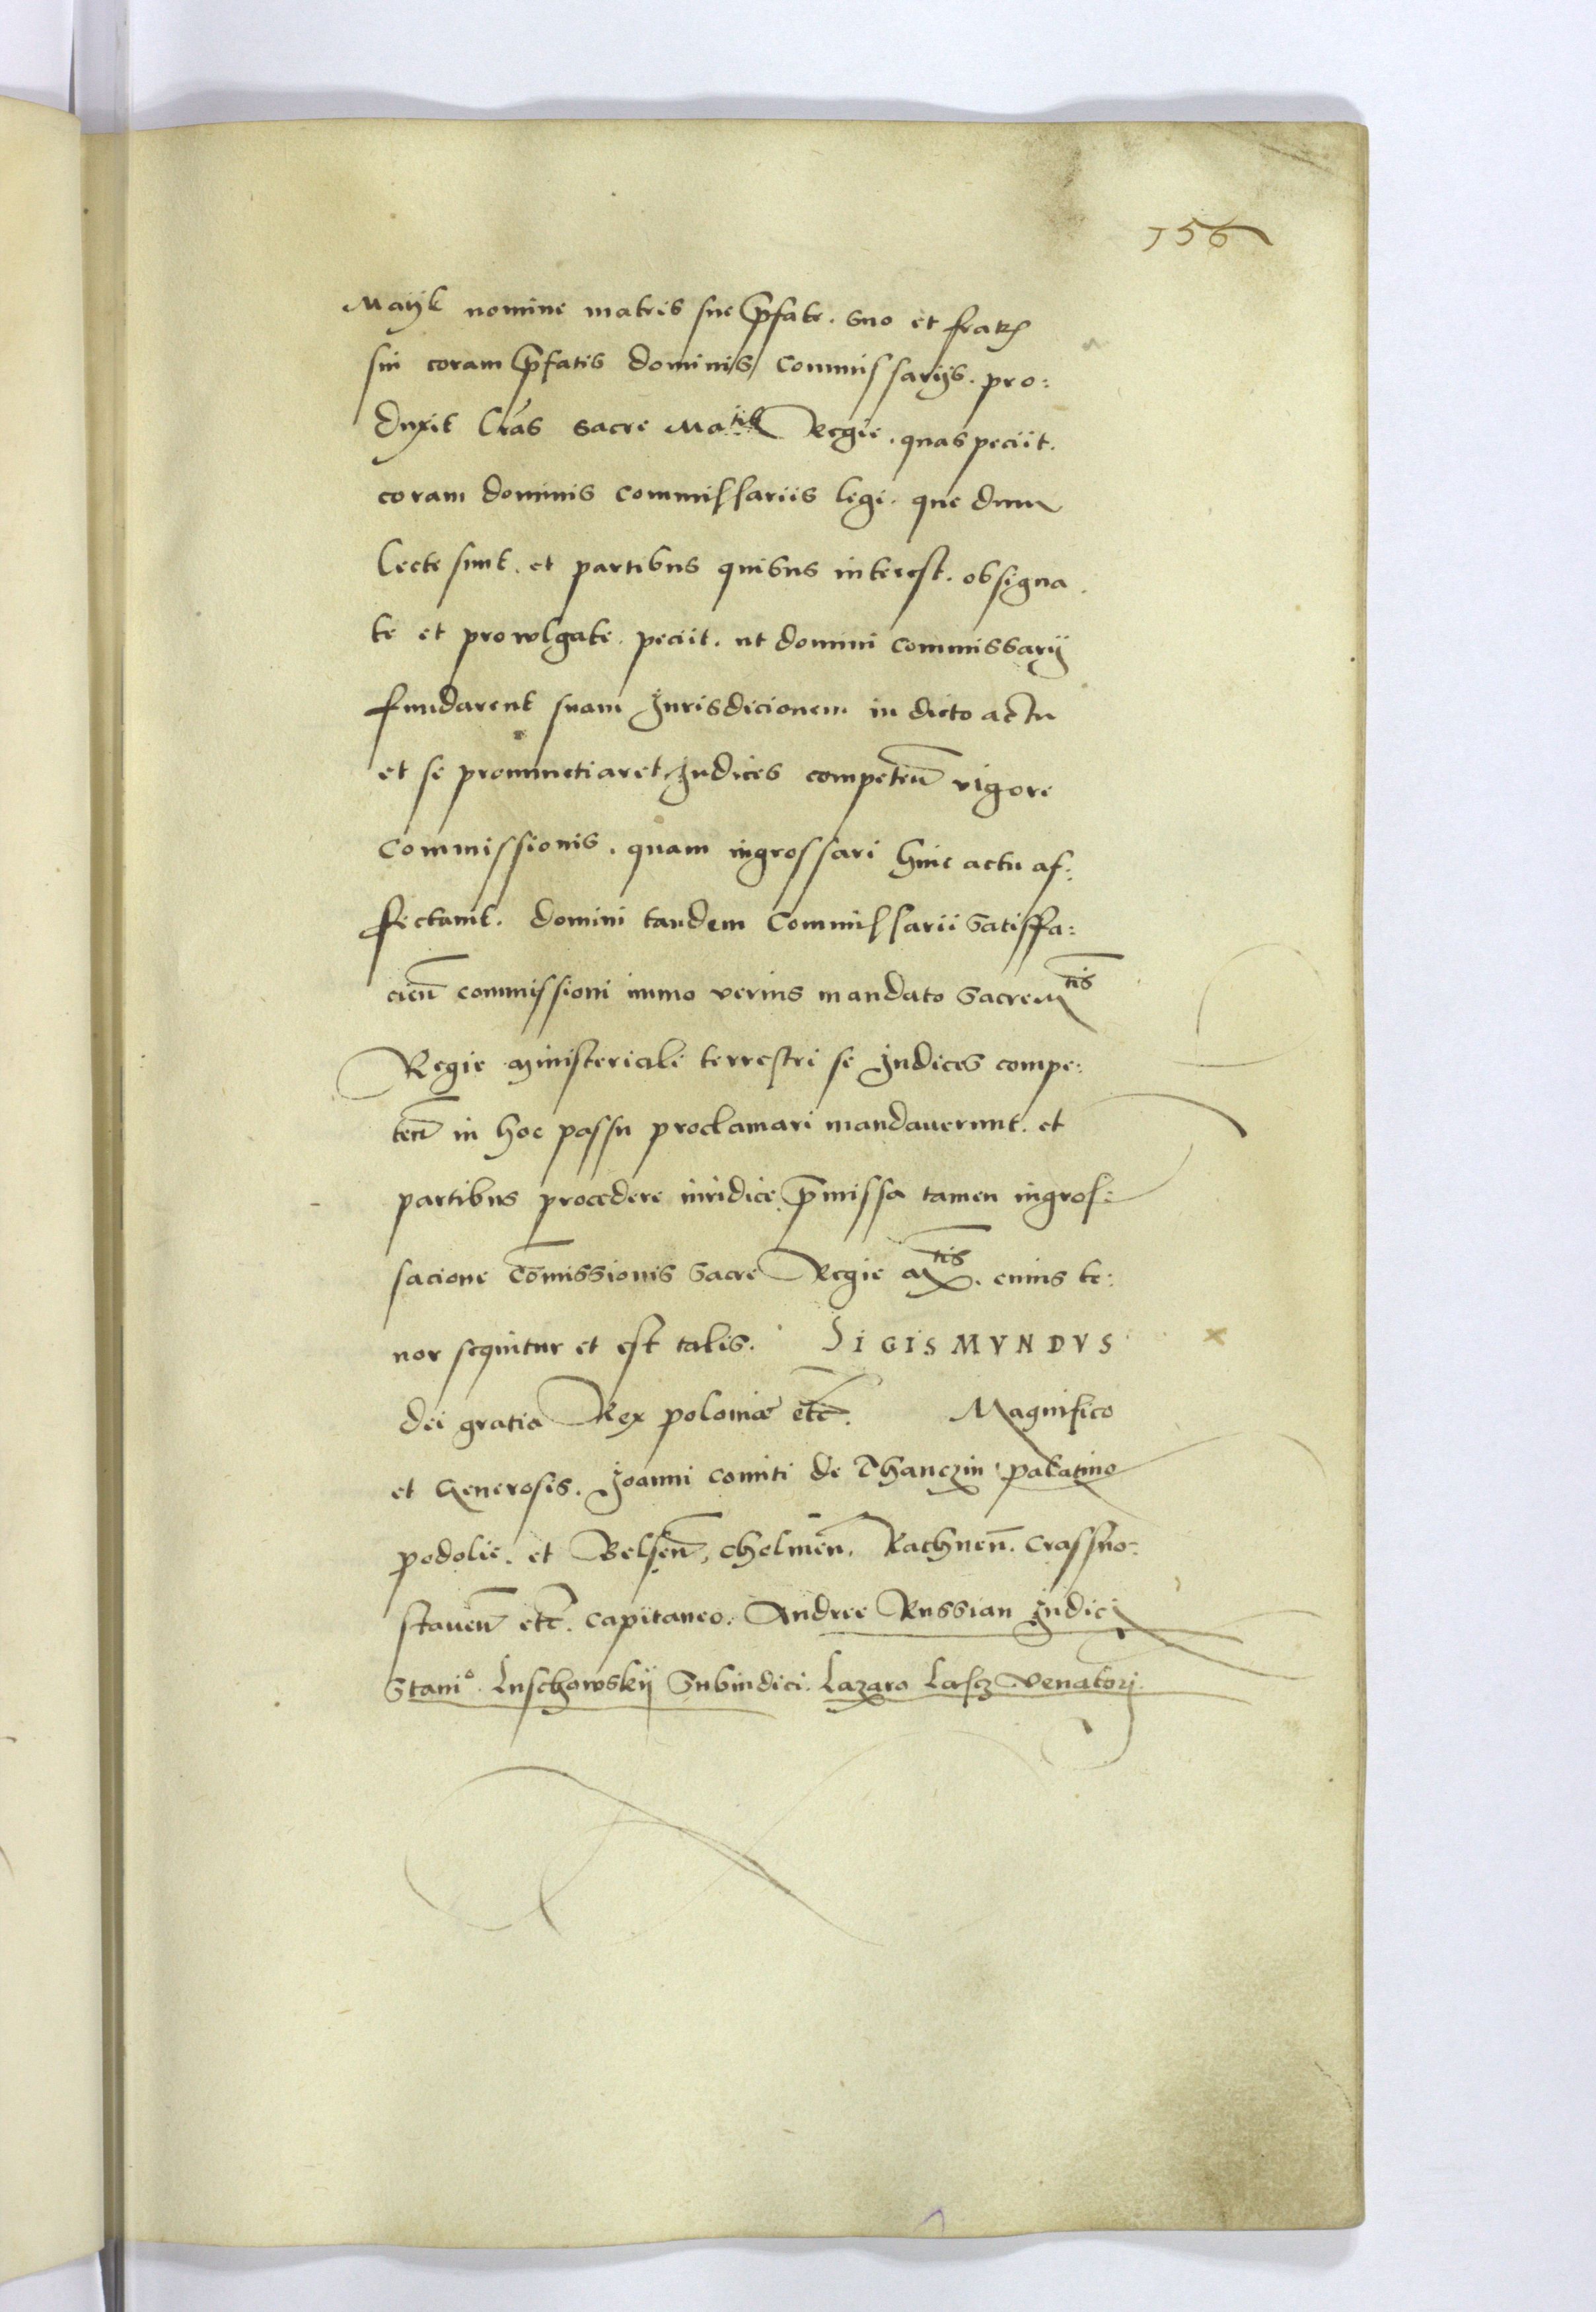 156
Mayk nomine matris sue p̄fate. suo et fratrꝫ
sui coram p̄fatis dominis Commissarijs. pro:
duxit l̄ras sacre Matis Regie. quas peciit.
coram dominis commissariis legi. que dum
lecte sunt. et partibus quibus interest. obsigna
te et prowlgate. peciit. ut domini commissarij
fundarent suam Jurisdicionem in dicto actu
et se pronunctiaret Judices competen̄ vigore
commissionis. quam ingrossari huic actu af:
fectauit. domini tandem Commissarii Satisffa:
cien̄ commissioni immo verius mandato Sacre Mtis
Regie ministeriale terrestri se Judices compe:
ten̄ in hoc passu proclamari mandauerunt. et
partibus procedere iuridice p̄missa tamen ingros:
sacione Com̄issionis Sacre Regie Mtis. cuius te:
nor sequitur et est talis. SIGISMVNDVS
dei gratia Rex poloniæ etc̄. Magnifico
et Generosis. Joanni comiti de Thanczin palatino
podolie. et Belsen̄, Chelmen̄. Rathnen̄. Crassno:
stauen̄ etc̄. capitaneo. Andree Russian Judici
Stanio. Luschowskij Subiudici. Lazaro Lasscz Venatorj.